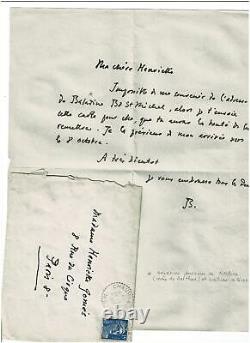 Ma chère Henriette
Impossible de me souvenir de l'adresse
de Baladine Bd St Michel, alors je t'envoie
cette carte pour elle, que tu auras la bonté de lui
remettre. Je la préviens de mon arrivée vers
le 8 octobre.
A très bientôt
je vous embrasse tous les deux
B.
Madame Henriette Gomès
8 Rue du Cirque
Paris 8e